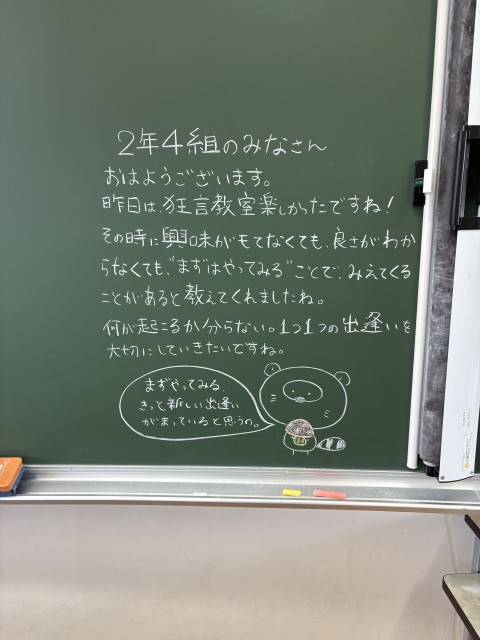 2年4組のみなさん
おはようございます。
昨日は、狂言教室楽しかったですね！
その時に興味がもてなくても、良さがわか
らなくても、"まずはやってみる"ことで、みえてくる
ことがあると教えてくれましたね。
何が起こるか分らない。1つ1つの出逢いを
大切にしていきたいですね。
まずやってみる、
きっと新しい出逢い
がまっていると思うの。